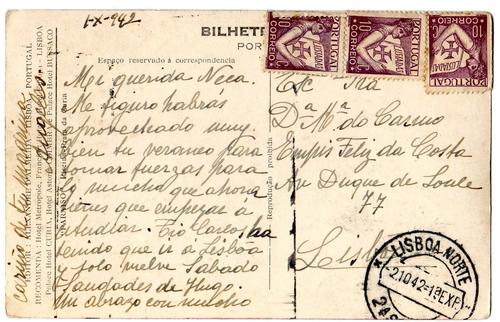 1-X-942
BILHETE
POR
Espaço reservado á correspondencia
Mi querida Neca.
Me figuro habrás
aprovechado muy
bien tu veraneo para
tomar fuerzas para
lo mucho que ahora
tienes que empezar á
estudiar. Tio Carlos ha
tenido que ir a Lisbôa
y solo vuelve Sabado
Saudades de Hugo.
Un abrazo con mucho
cariño
PORTUGAL
CORREIO
10 C.
LUSIADAS
PORTUGAL
CORREIO
10 C.
LUSIADAS
PORTUGAL
CORREIO
10 C.
LUSIADAS
Dª Mª do Carmo
Empis Feliz da Costa
Av Duque de Loulé
77
Lisboa
LISBOA NORTE
2.10.42-1ªEXP.
Reprodução prohibida
LISBOA - PORTUGAL
RECOMENDA: Hotel Metropole, Francfort
Palace Hotel CURIA, Hotel Astoria
e Palace Hotel BUSSACO
- LISBOA